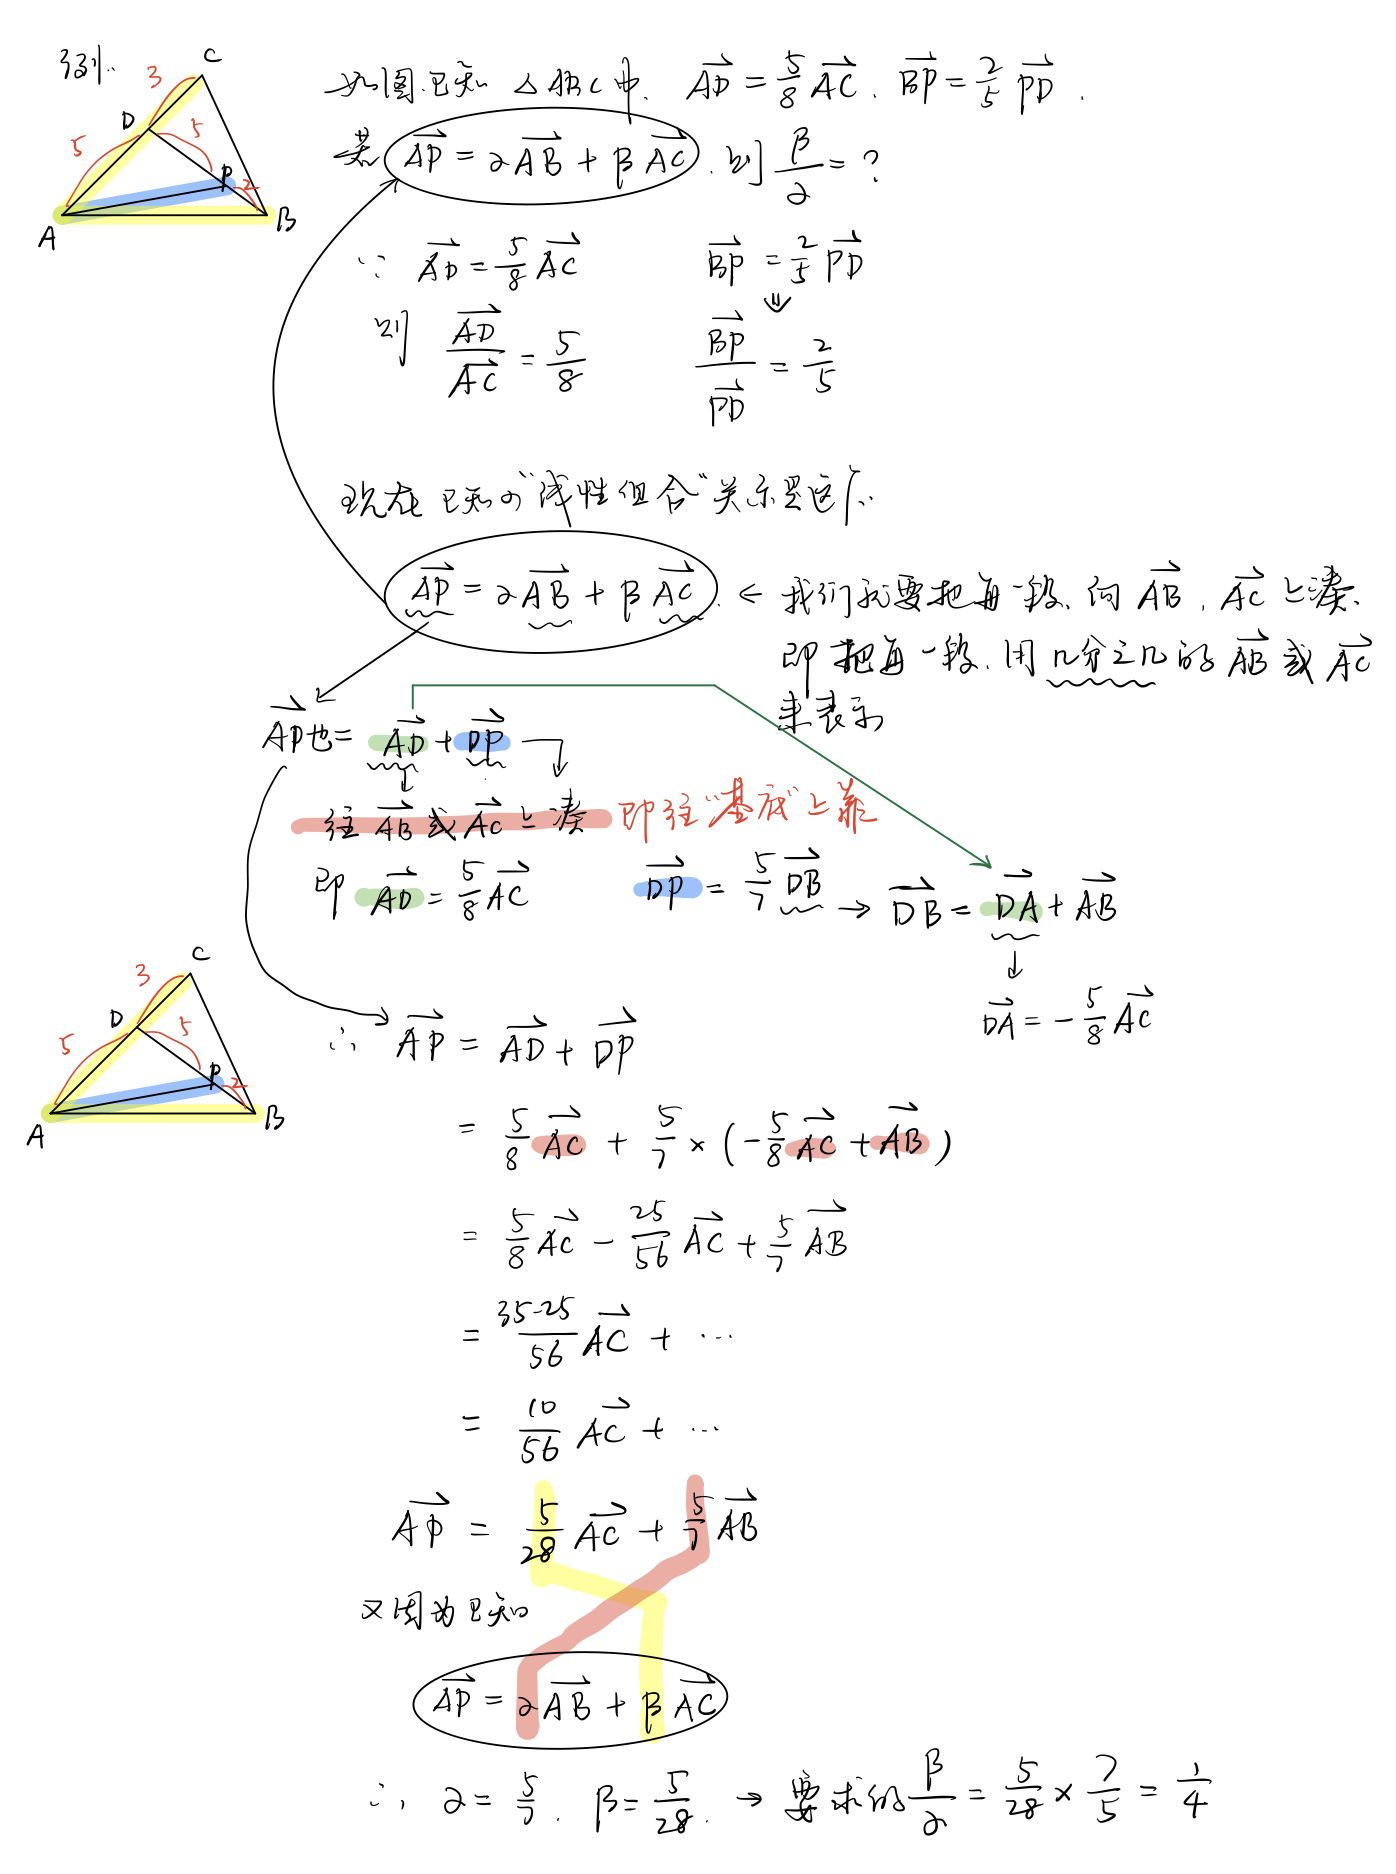 例:
C
3
D
5
5
P
2
A
B
如图.已知 △ABC中. AD = 5/8 AC . BP = 2/5 PD .
若 AP = αAB + βAC . 则 β/α = ?
∵ AD = 5/8 AC BP = 2/5 PD
⇓
则 AD/AC = 5/8 BP/PD = 2/5
现在已知的"线性组合"关系是这个:
AP = αAB + βAC . ← 我们就要把每一段、向 AB , AC 上凑.
即把每一段. 用几分之几的 AB 或 AC
来表示
AP也= AD + DP
往 AB 或 AC 上凑 即往"基底"上靠
即 AD = 5/8 AC DP = 5/7 DB → DB = DA + AB
DA = - 5/8 AC
C
3
D
5
5
P
2
A
B
∴ AP = AD + DP
= 5/8 AC + 5/7 × ( - 5/8 AC + AB )
= 5/8 AC - 25/56 AC + 5/7 AB
= 35-25/56 AC + ...
= 10/56 AC + ...
AP = 5/28 AC + 5/7 AB
又因为已知
AP = αAB + βAC
∴ α = 5/7 . β = 5/28 . → 要求的 β/α = 5/28 × 7/5 = 1/4